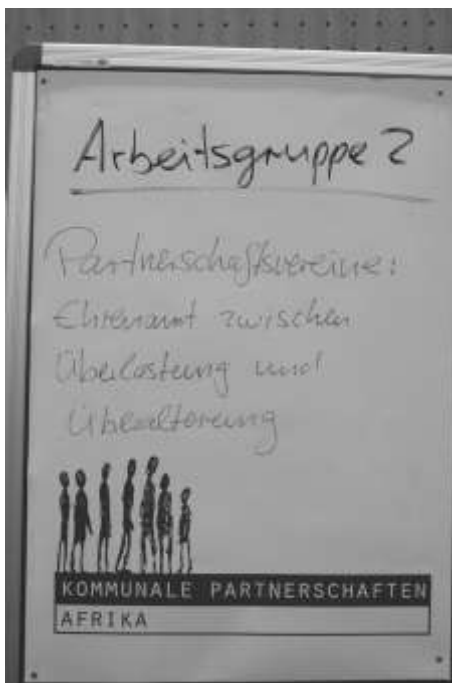 Arbeitsgruppe 2
Partnerschaftsvereine:
Ehrenamt zwischen
Überlastung und
Überalterung
KOMMUNALE PARTNERSCHAFTEN
AFRIKA